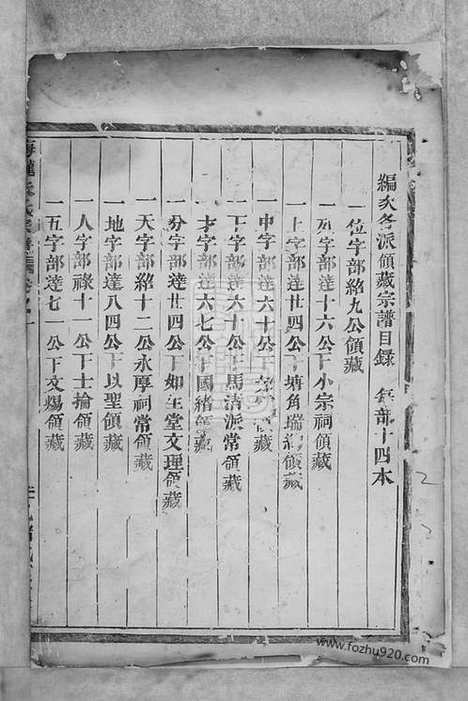 編次各派領藏宗譜目錄 每部十四本
一位字部紹九公領藏
一列字部達十六公下小宗祠領藏
一上字部達廿四公下塘角瑞 領藏
一中字部達六十公下 領藏
一下字部達六十公下馬清派常領藏
一才字部達六七公下國緒領藏
一分字部達廿四公下如在堂文理領藏
一天字部紹十二公永厚祠常領藏
一地字部達八四公下以聖領藏
一人字部祿十一公下士掄領藏
一五字部達七一公下文煬領藏
www.fozhu920.com